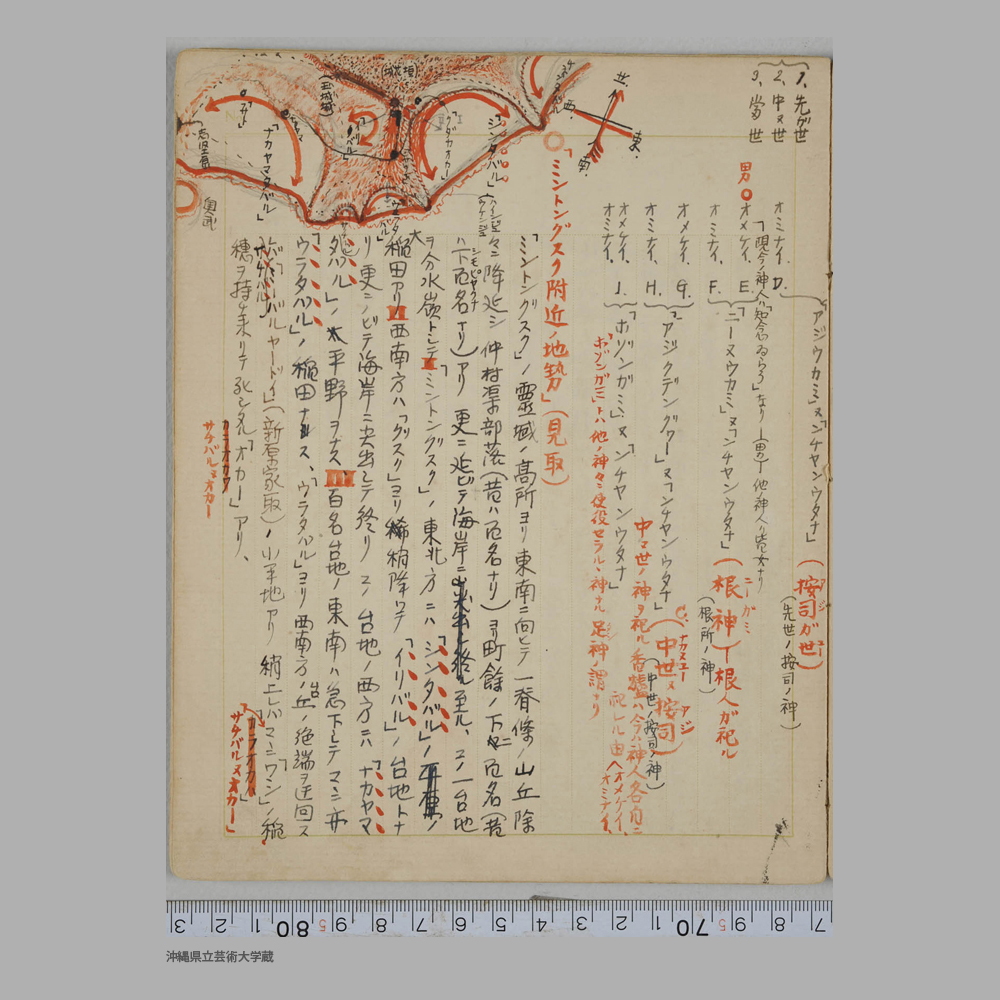 1、先ガ世
2、中ヌ世
3、當世
「アジウカミ」ヌ「ンチヤンウタナ」
(按司ガ世)
(先世ノ按司ノ神)
オミナイ. D.
「現今ノ神人ハ「知念
男
オメケイ. E.
オミナイ. F.
「ニーヌウカミ」ヌ「ンチヤンウタナ」
(根神ー根人ガ祀ル
ニーガミ
(根所ノ神)
オメケイ. G.
オミナイ. H.
「アジクデングワー」ヌ「ンチヤンウタナ」
(中世ヌ按司)
ナカヌユー アジ
(中世ノ按司ノ神)
オメケイ. I.
オミナイ.
「ボゾンガミ」ヌ「ンチヤンウタナ」
中ヌ世ノ神ヲ祀ル香爐ハ今ハ神人各自ニ
祀レル由
オメケイ.
オミナイ.
「ボゾンガミ」トハ他ノ神々ニ使役セラルヽ神ナル足神ノ謂ナリ
「ミントングスク附近ノ地勢」(見取)
「ミントングスク」ノ靈域ノ高所ヨリ東南ニ向ヒテ一脊條ノ山丘除
々ニ降延シ仲村渠部落(昔ハ百名ナリ)ヨリ町餘ノ下ニ百名(昔
ハ下百名ナリ)アリ更ニ延ビテ海岸ニ至ル、コノ一台地
シモヒヤクナ
ヲ分水嶺トシテ「ミントングスク」ノ東北方ニハ「シンタバル」ノ
大稲田アリ 西南方ハ「グスク」ヨリ稍降リテ「イリバル」ノ台地トナ
リ更ニノビテ海岸ニ突出シテ終リ コノ台地ノ西方ニハ「ナカヤマ
タバル」ノ太平野ヲナス、百名台地ノ東南ハ急下シテマニ亦
「ウラタバル」ノ稲田ナス、「ウラタバル」ヨリ西南方ノ丘ノ絶端ヲ迂回ス
レバ「ミーバルヤードイ」(新原家取)ノ小平地アリ 稍上レバ「マニワン」ノ稲
穂ヲ持チ来リテ死シタル「オカー」アリ、
カラオカワ
サチバルヌオカー
「カラオカー」
「サチバルヌオカー」
北.
東.
南.
西.
城垣
(玉城城)
「ナカヤマタバル」
「イリバル」
「シンタバル」
志堅原
奥武
3 2 1 80 9 8 7 6 5 4 3 2 1 70 9 8 7
沖縄県立芸術大学蔵